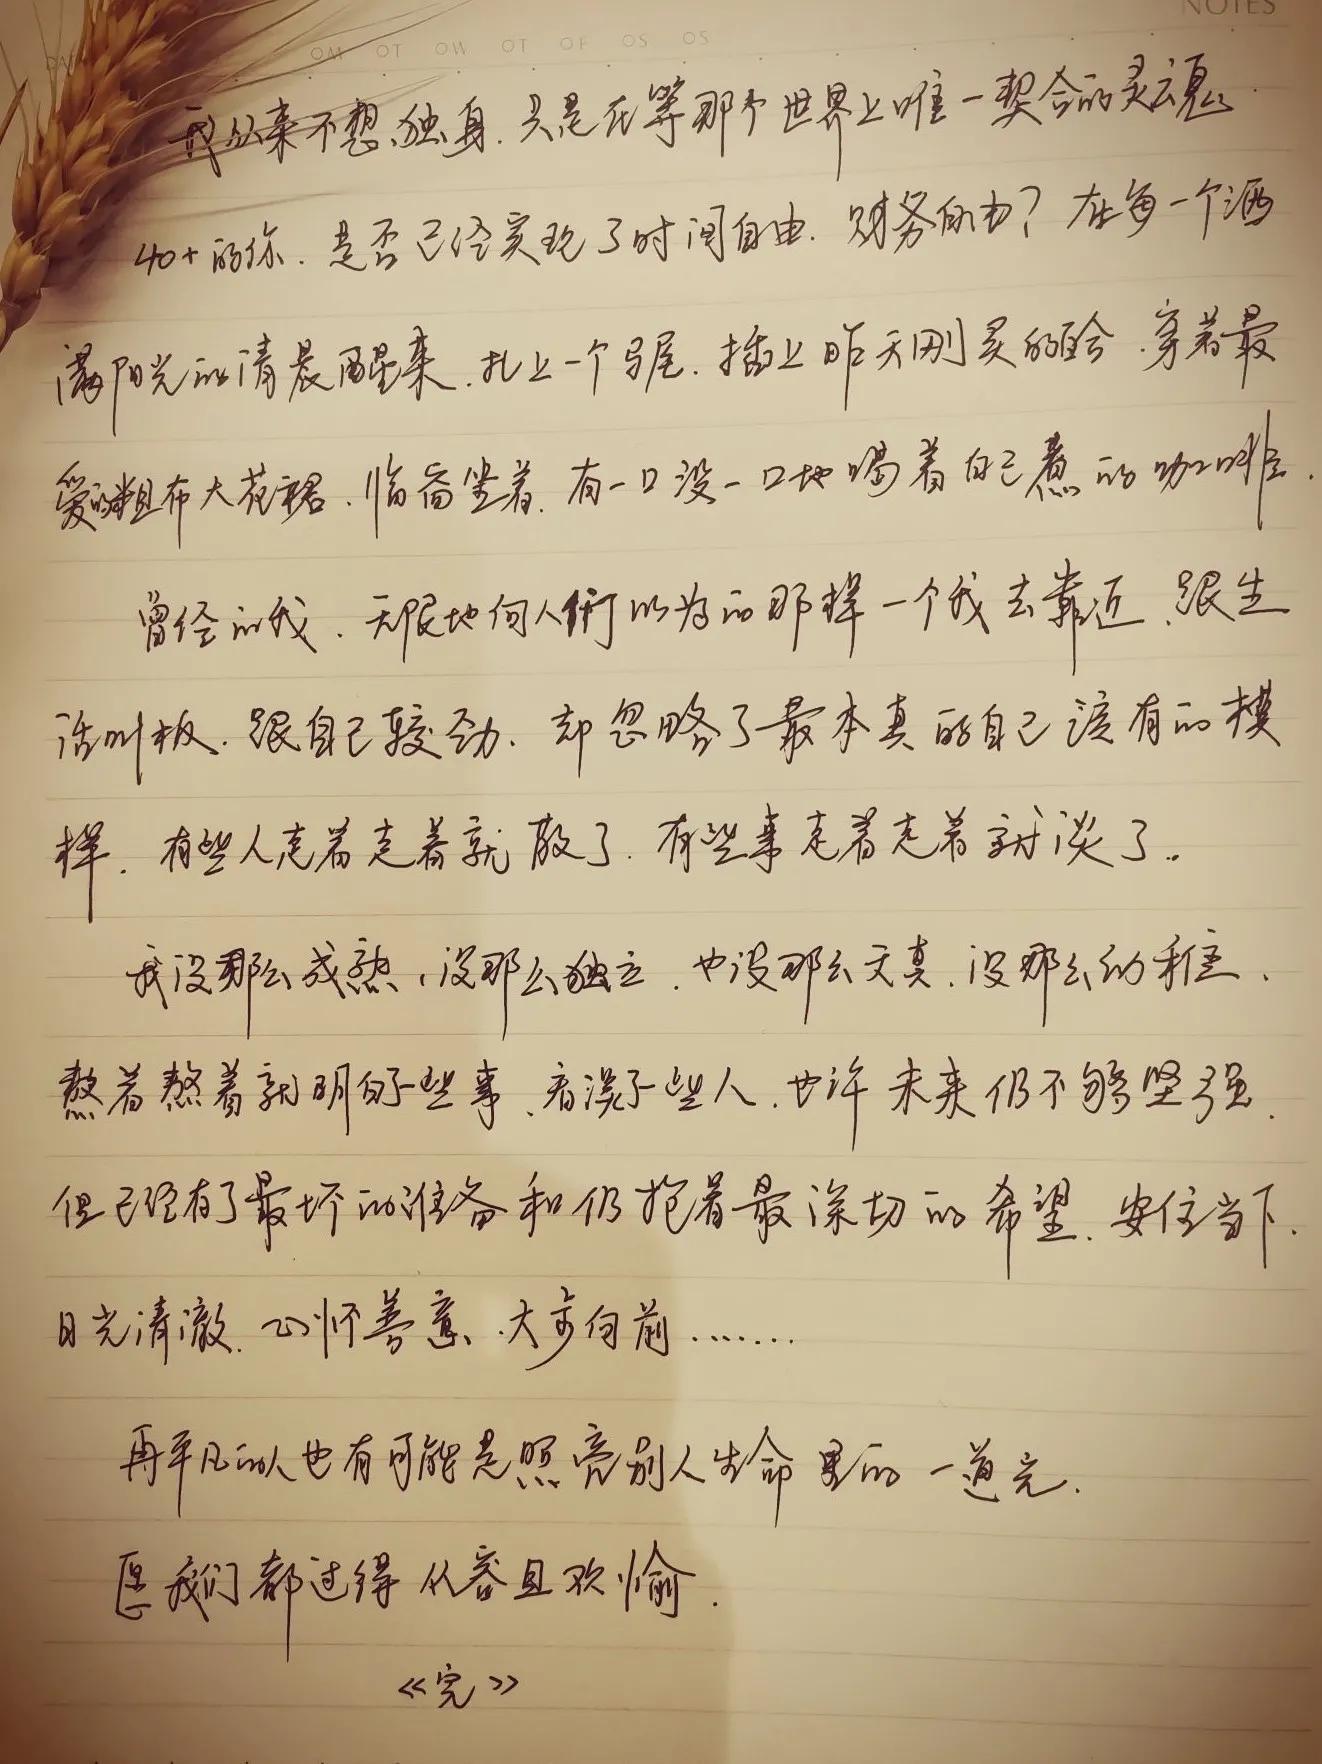 NOTES
OM OT OW OT OF OS OS
我从来不想独身.只是在等那个世界上唯一契合的灵魂.
40+的你.是否已经实现了时间自由.财务自由?在每一个洒
满阳光的清晨醒来.扎上一个马尾.插上昨天刚买的 .穿着最
爱的粗布大花裙.临窗坐着.有一口没一口地喝着自己煮的咖啡.
曾经的我.无限地向人们以为的那样一个我去靠近.跟生
活叫板.跟自己较劲.却忽略了最本真的自己该有的模
样.有些人走着走着就散了.有些事走着走着就淡了..
我没那么成熟,没那么独立.也没那么天真.没那么幼稚.
熬着熬着就明白了些事.看淡了些人.也许未来仍不够坚强.
但已经有了最坏的准备和仍抱着最深切的希望.安住当下.
目光清澈.心怀善意.大步向前.......
再平凡的人也有可能是照亮别人生命里的一道光.
愿我们都过得从容且欢愉.
《完》